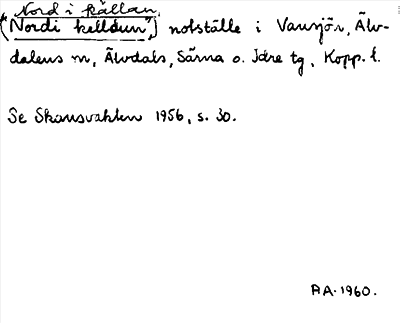 Nord i källan,
("Nordi kelldun",) notställe i Vansjön, Älv-
dalens sn, Älvdals, Särna o. Idre tg, Kopp. l.
Se Skansvakten 1956, s. 30.
RA. 1960.